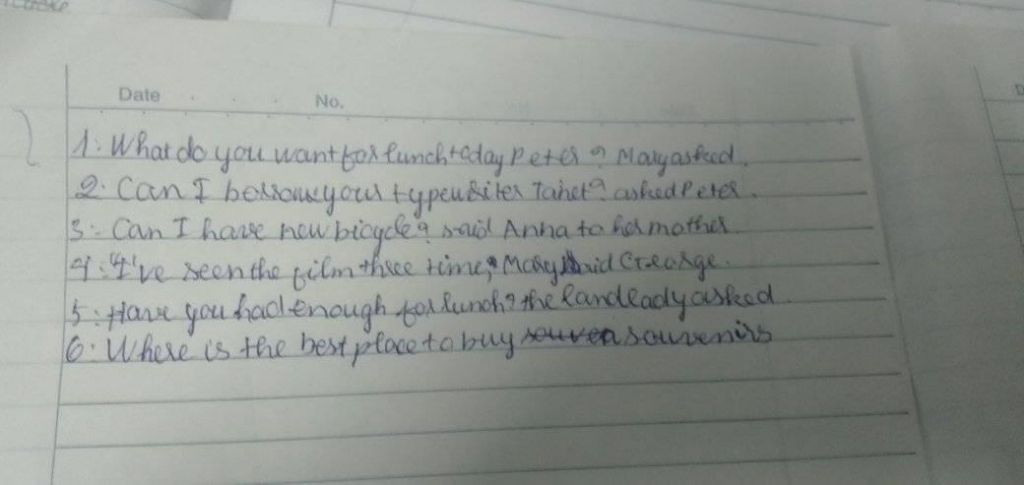 Date No.
1. What do you want for lunch today Peter? Mary asked.
2. Can I borrow your typewriter Janet? asked Peter.
3. Can I have new bicycle? said Anna to her mother
4. "I've seen the film three time, Mary said George.
5. Have you had enough for lunch? the landlady asked
6. Where is the best place to buy souvenirs